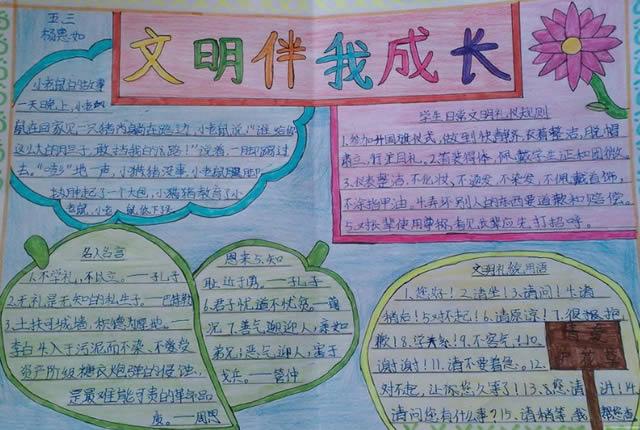 五三
杨思如
文明伴我成长
小老鼠白的故事
一天晚上,小老鼠
鼠在回家见一只猪肉躺在路边,小老鼠说:"谁给你
这么大的胆子,敢挡我的路!"说着,一脚踢过
去。"嘭"地一声,小猪猪没事,小老鼠腿却
起了一个大包,小猪猪教育了小
老鼠,小老鼠低下头
学生日常文明礼仪规则
1.参加升国旗仪式,做到快静齐、衣着整洁,脱帽
肃立,行注目礼。2.着装得体,佩戴学生证和团徽。
3.仪表整洁,不化妆,不烫发,不染发,不佩戴首饰,
不涂指甲油,4.弄坏别人的东西要道歉和赔偿。
5.对长辈使用尊称,看见长辈应先打招呼。
名人名言
1.不学礼,不以立。——孔子
2.无礼是无知的私生子。——巴特勒
3.土扶可城墙,积德为厚地。——
李白 4.入于污泥而不染、不受资
产阶级糖衣炮弹的侵蚀,
是最难能可贵的革命品
质。——周恩
恩来 5.知
耻近于勇。——孔子
6.君子忧道不忧贫。——孔
丘 7.善气迎人,亲如
弟兄;恶气迎人,害于
戈兵。——管仲
文明礼貌用语
1.您好!2.请坐!3.请问!4.请
稍后!5.对不起!6.请原谅!7.很抱
歉!8.没关系!9.不客气!10.
谢谢!11.请不要着急。12.
对不起,让你您久等了!13.您请讲!14
请问您有什么事?15.请稍等,我帮您查
请爱
护花草